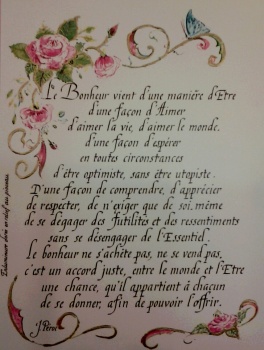 Le Bonheur vient d'une manière d'Etre
d'une façon d'Aimer
d'aimer la vie, d'aimer le monde,
d'une façon d'espérer
en toutes circonstances
d'être optimiste, sans être utopiste.
D'une façon de comprendre, d'apprécier
de respecter, de n'exiger que de soi, même
de se dégager des Futilités et des ressentiments
sans se désengager de l'Essentiel.
Le bonheur ne s'achète pas, ne se vend pas,
c'est un accord juste, entre le monde et l'Etre
une chance, qu'il appartient à chacun
de se donner, afin de pouvoir l'offrir.